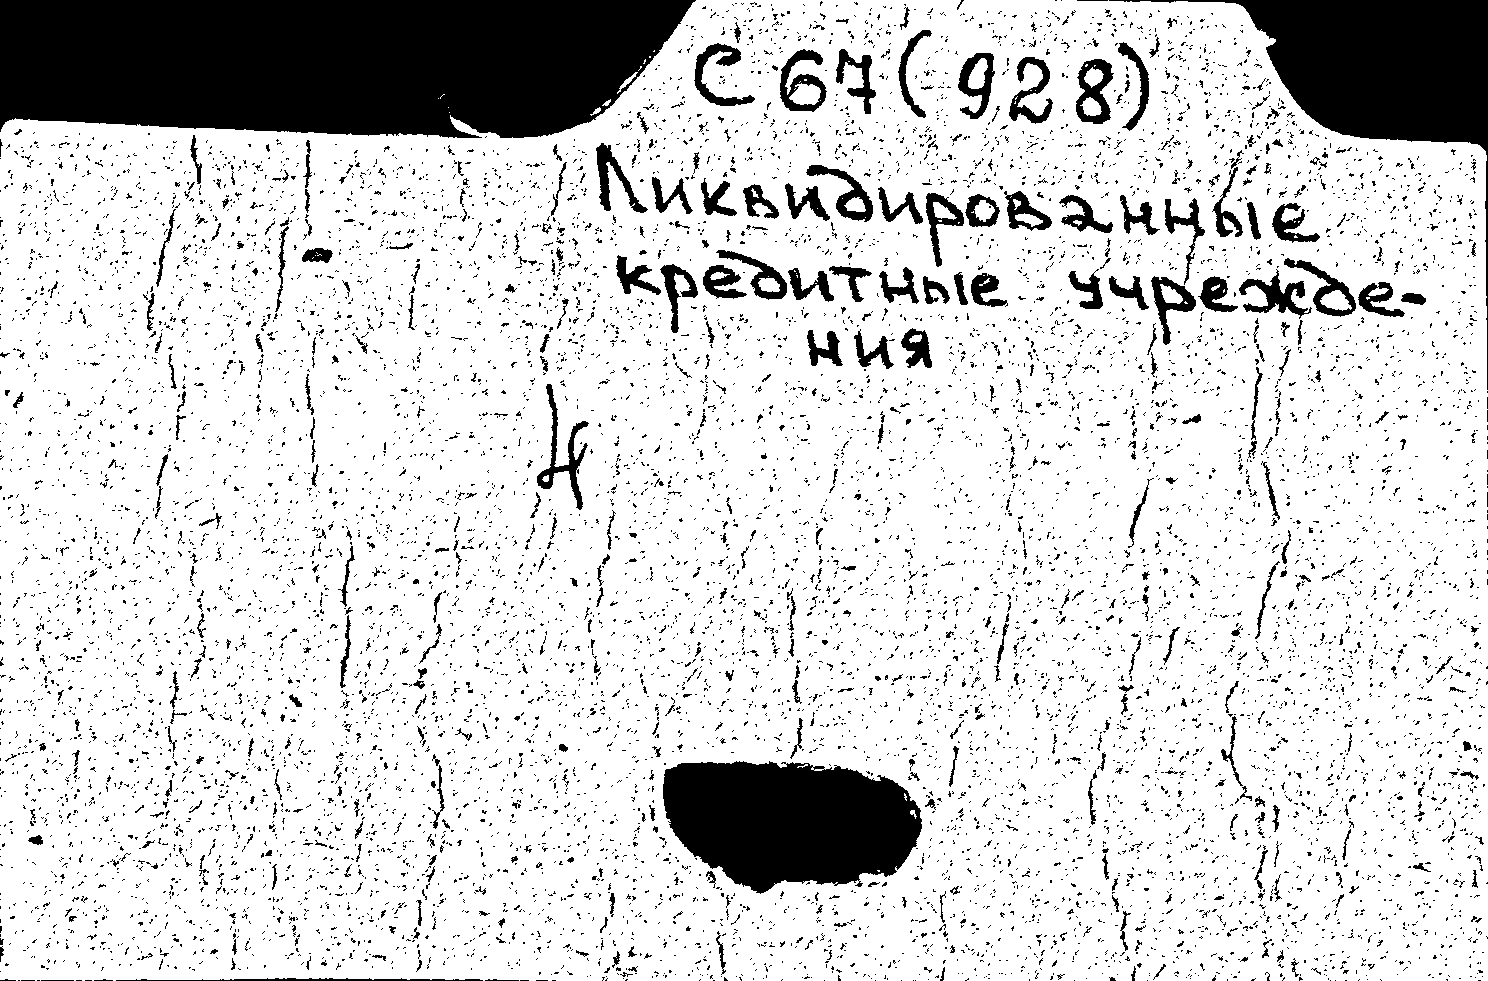 С 67(928)
Ликвидированные
кредитные учрежде-
ния
4